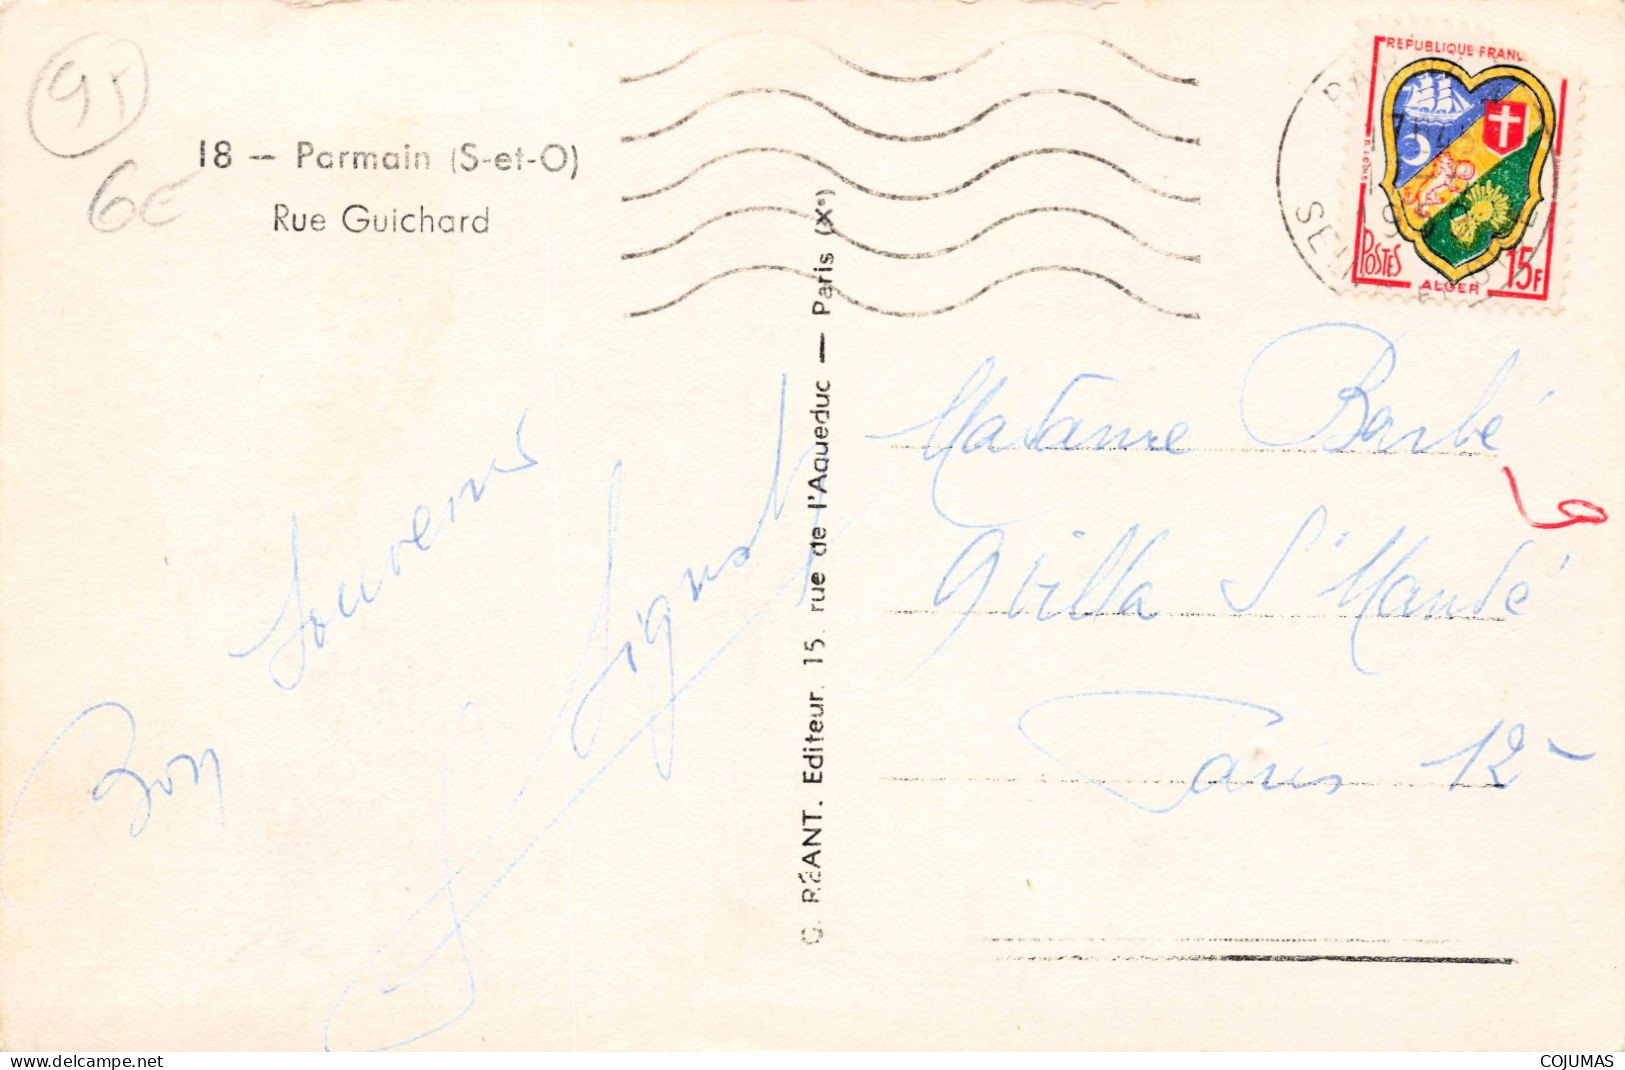 95
6€
18 — Parmain (S-et-O)
Rue Guichard
Bon Souvenir
G. RÉANT. Editeur. 15. rue de l'Aqueduc — Paris (Xe)
REPUBLIQUE FRANC
POSTES
ALGER
15F
Madame Barbé
9 villa St Mandé
Paris 12
www.delcampe.net
COJUMAS